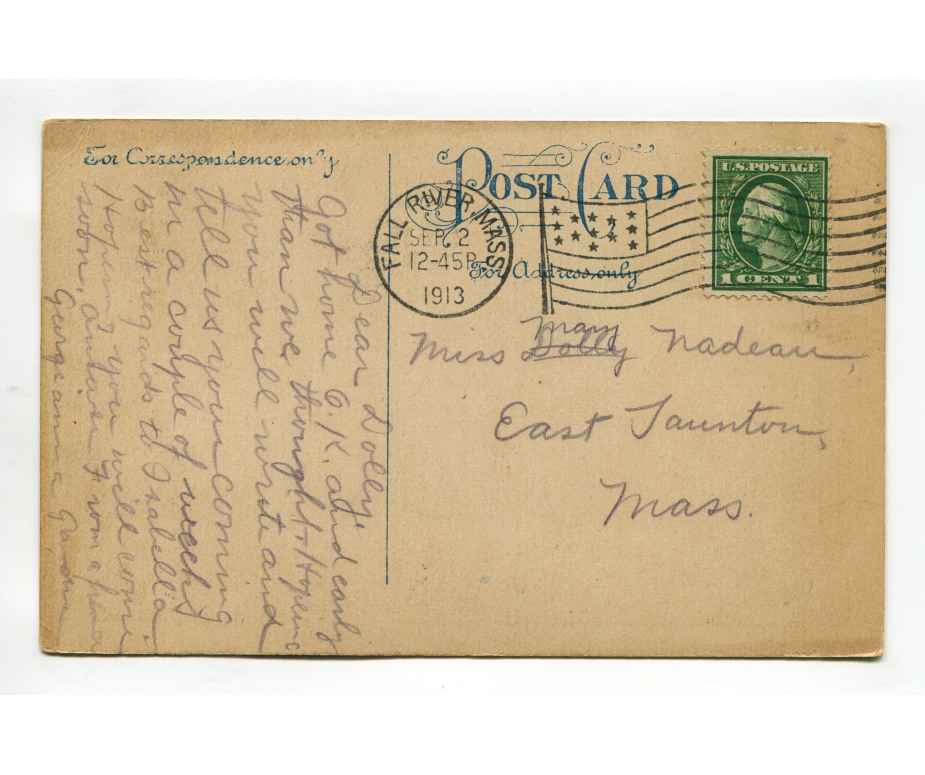 For Correspondence only
POST CARD
For Address only
FALL RIVER, MASS.
SEP 2
12-45P
1913
U.S. POSTAGE
1 CENTS 1
Miss Dolly Mary Nadeau,
East Taunton,
Mass.
Dear Dolly,
Got home O.K. and early
than we thought. Hopeing
you will write and
tell us your coming
in a couple of weeks
Best regards to Isabella
Hopeing you will come
soon, answer From a friend
Georgeanna